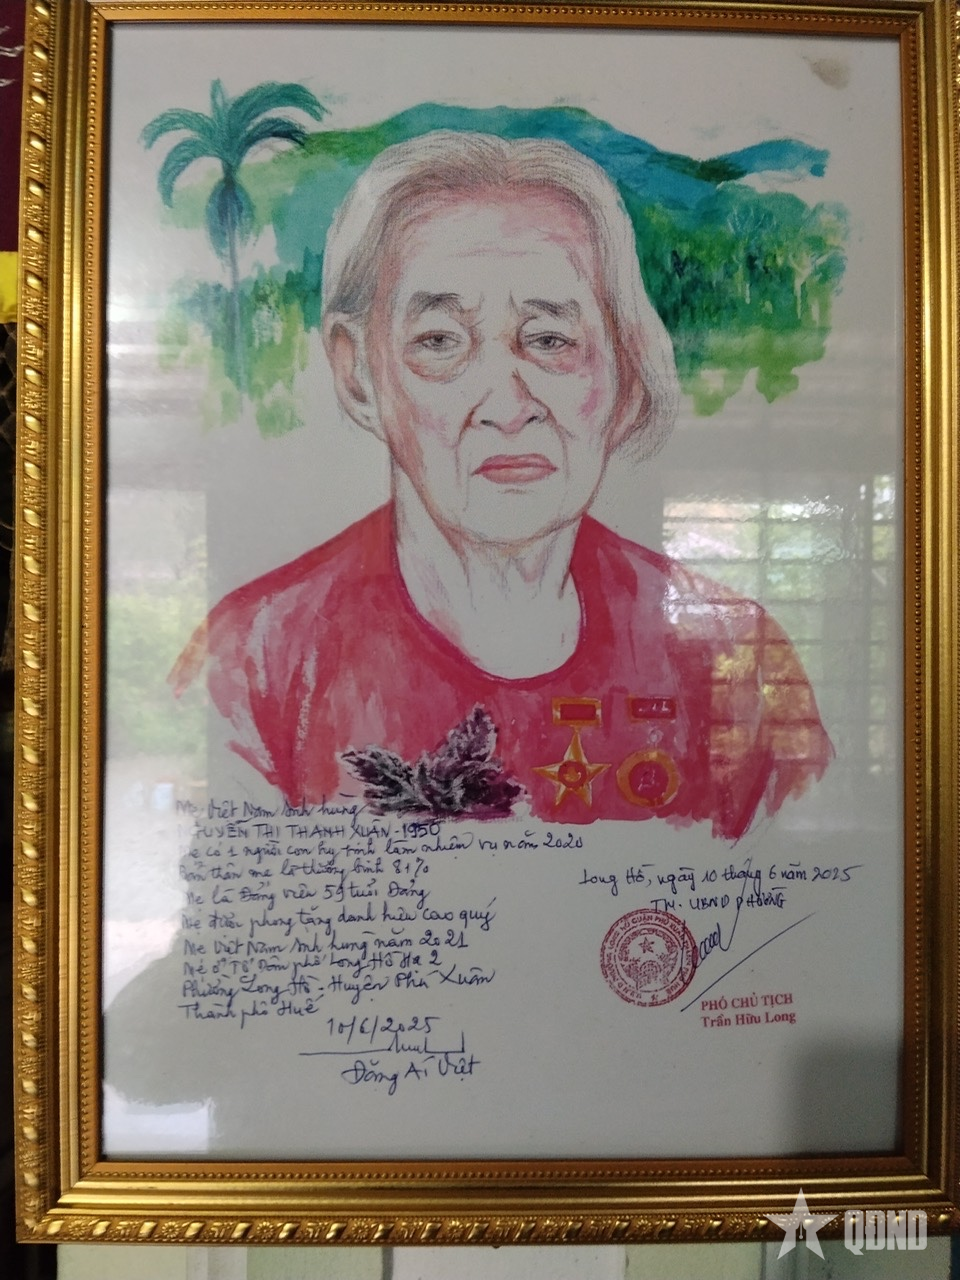 Mẹ Việt Nam Anh hùng
NGUYỄN THỊ THANH XUÂN - 1950
Mẹ có 1 người con hy sinh làm nhiệm vụ năm 2020
Bản thân mẹ là thương binh 81%
Mẹ là Đảng viên 59 tuổi Đảng
Mẹ được phong tặng danh hiệu cao quý
Mẹ Việt Nam Anh hùng năm 2021
Mẹ ở Tổ Dân phố Long Hồ Hạ 2
Phường Long Hồ - Huyện Phú Xuân
Thành phố Huế
10/6/2025
Đặng Ái Việt
Long Hồ, ngày 10 tháng 6 năm 2025
TM. UBND PHƯỜNG
PHÓ CHỦ TỊCH
Trần Hữu Long
QĐND